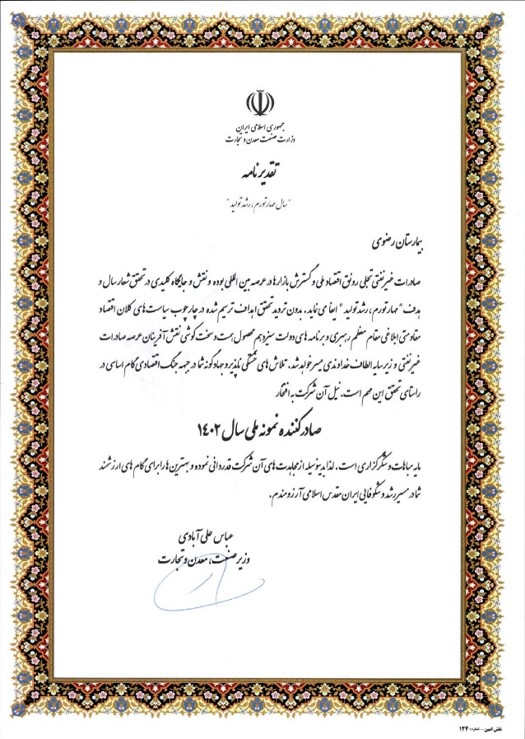 جمهوری اسلامی ایران
وزارت صنعت معدن و تجارت
تقدیرنامه
"سال مهار تورم، رشد تولید"
بیمارستان رضوی
صادرات غیرنفتی تجلی رونق اقتصاد ملی و گسترش بازارها در عرصه بین المللی بوده و نقش و جایگاه کلیدی در تحقق شعار سال و
هدف "مهار تورم، رشد تولید" ایفا می نماید. بدون تردید تحقق اهداف ترسیم شده در چارچوب سیاست های کلان اقتصاد
مقاومتی ابلاغی مقام معظم رهبری و برنامه های دولت سیزدهم محصول همت و سخت کوشی نقش آفرینان عرصه صادرات
غیرنفتی و زیر سایه الطاف خداوندی میسر خواهد شد. تلاش های خستگی ناپذیر و جهادگونه شما در جبهه جنگ اقتصادی گام اساسی در
راستای تحقق این مهم است. نیل آن شرکت به افتخار
صادرکننده نمونه ملی سال ۱۴۰۲
مایه مباهات و شکرگزاری است. لذا بدینوسیله از مجاهدت های آن شرکت قدردانی نموده و بهترین ها را برای گام های ارزشمند
شما در مسیر رشد و شکوفایی ایران مقدس اسلامی آرزومندم.
عباس علی آبادی
وزیر صنعت، معدن و تجارت
نقش آفرین - شماره: ۱۲۴